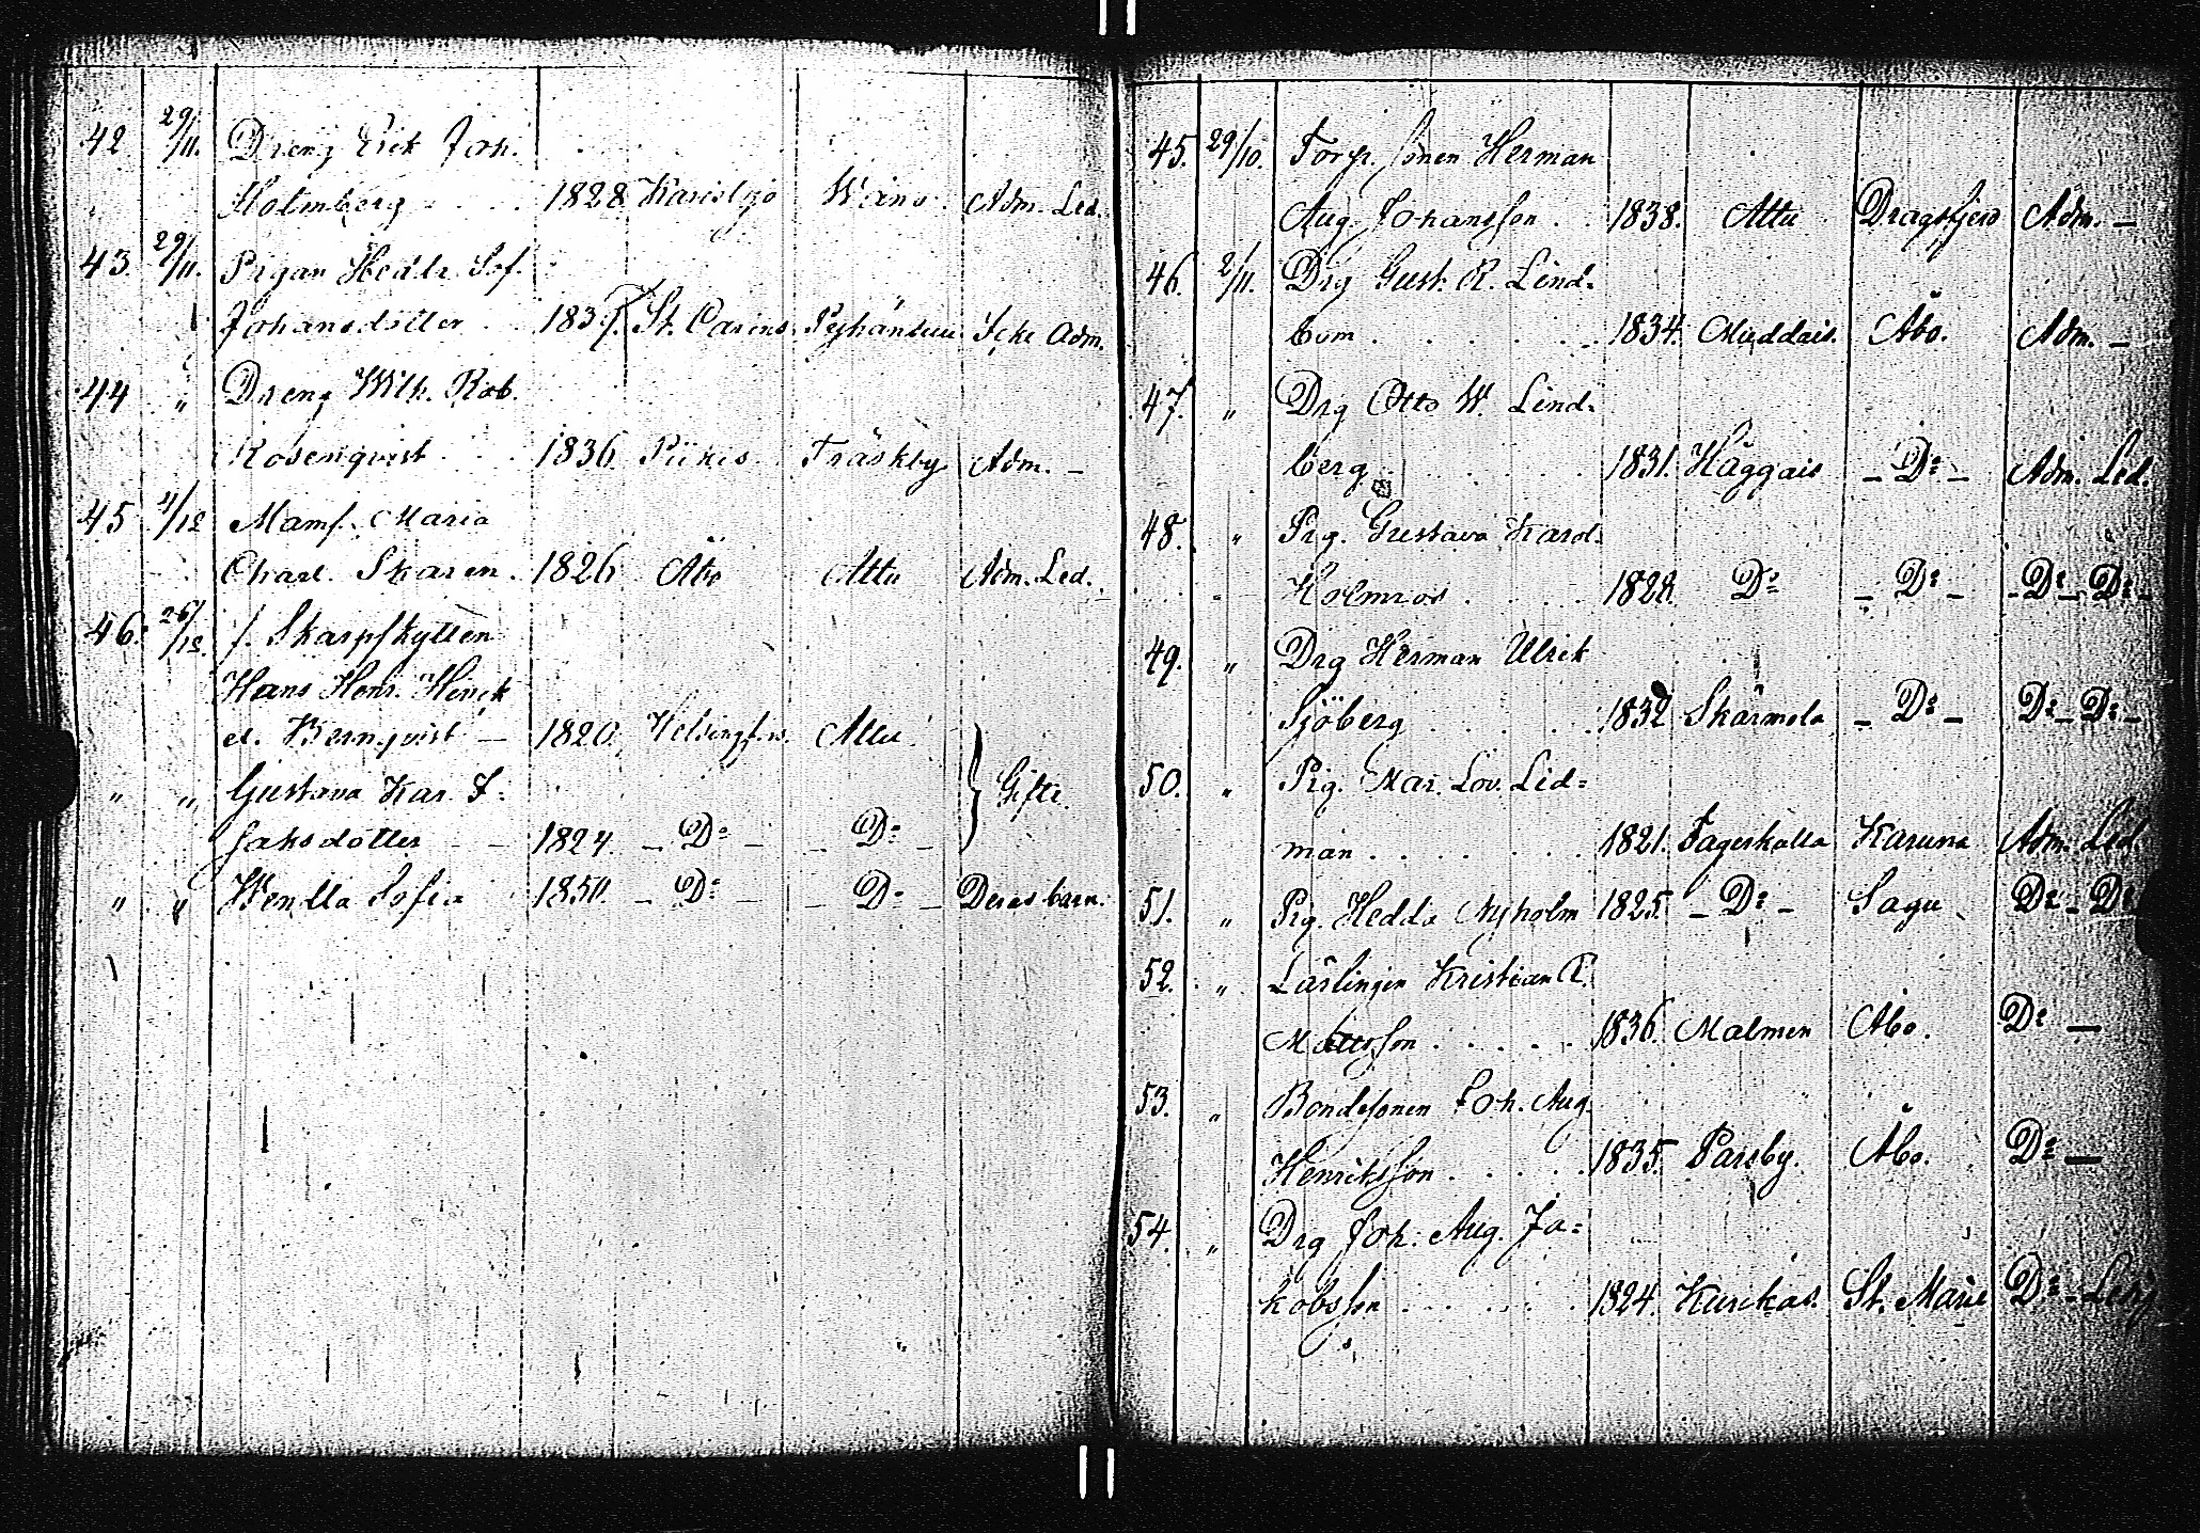 42 29/11. Dreng Erik Joh.
Holmberg 1828 Karislojo Wäno Adm. Led.
43. 29/11. Pigan Hedda Sof.
Johansdotter 1837. St. Carins Pyhänsuu Icke Adm.
44 " Dreng Wilh. Rob.
Rosenqvist 1836. Piikis Träskby Adm. —
45 4/12 Mamſ. Maria
Charl. Skaren. 1826 Åbo Attu Adm. Led.
46. 26/12. f. Skarpſkytten
Hans Henr. Henrik
el. Bernqvist — 1820. Helsingf.rs. Attu
" " Gustava Kar. I- } Gifte.
saksdotter — 1824. — Do — — Do —
" " Wendla Sofia 1850. — Do — — Do — Deras barn.
45. 29/10. Torp. ſonen Herman
Aug. Johansſon . . 1838. Attu Dragsfjerd Adm. —
46. 2/11. Drg Gust. R. Lind-
bom . . . . . . 1834. Muddais. Åbo. Adm. —
47. " Drg Otto W. Lind-
berg . . . . . 1831. Häggais — Do — Adm. Led.
48. " Pig. Gustava Karol.
Holmros . . . . 1828. Do — Do — — Do — Do —
49. " Drg Herman Ulrik
Sjöberg . . . . . 1832 Skärmola — Do — Do — Do —
50. " Pig. Mar. Lov. Lid-
man . . . . . . 1821. Fagerkulla Karuna Adm. Led.
51. " Pig. Hedda Nyholm 1825. — Do — Sagu Do — Do
52. " Lärlingen Kristian R.
Mattsſon . . . . . 1836. Malmen Åbo. Do —
53. " Bondeſonen Joh. Aug.
Henriksſon . . . . . 1835. Parsby. Åbo. Do —
54. " Drg Joh. Aug. Ja-
kobsſon . . . . . . 1824. Kurckas. St. Marie Do — Ledj